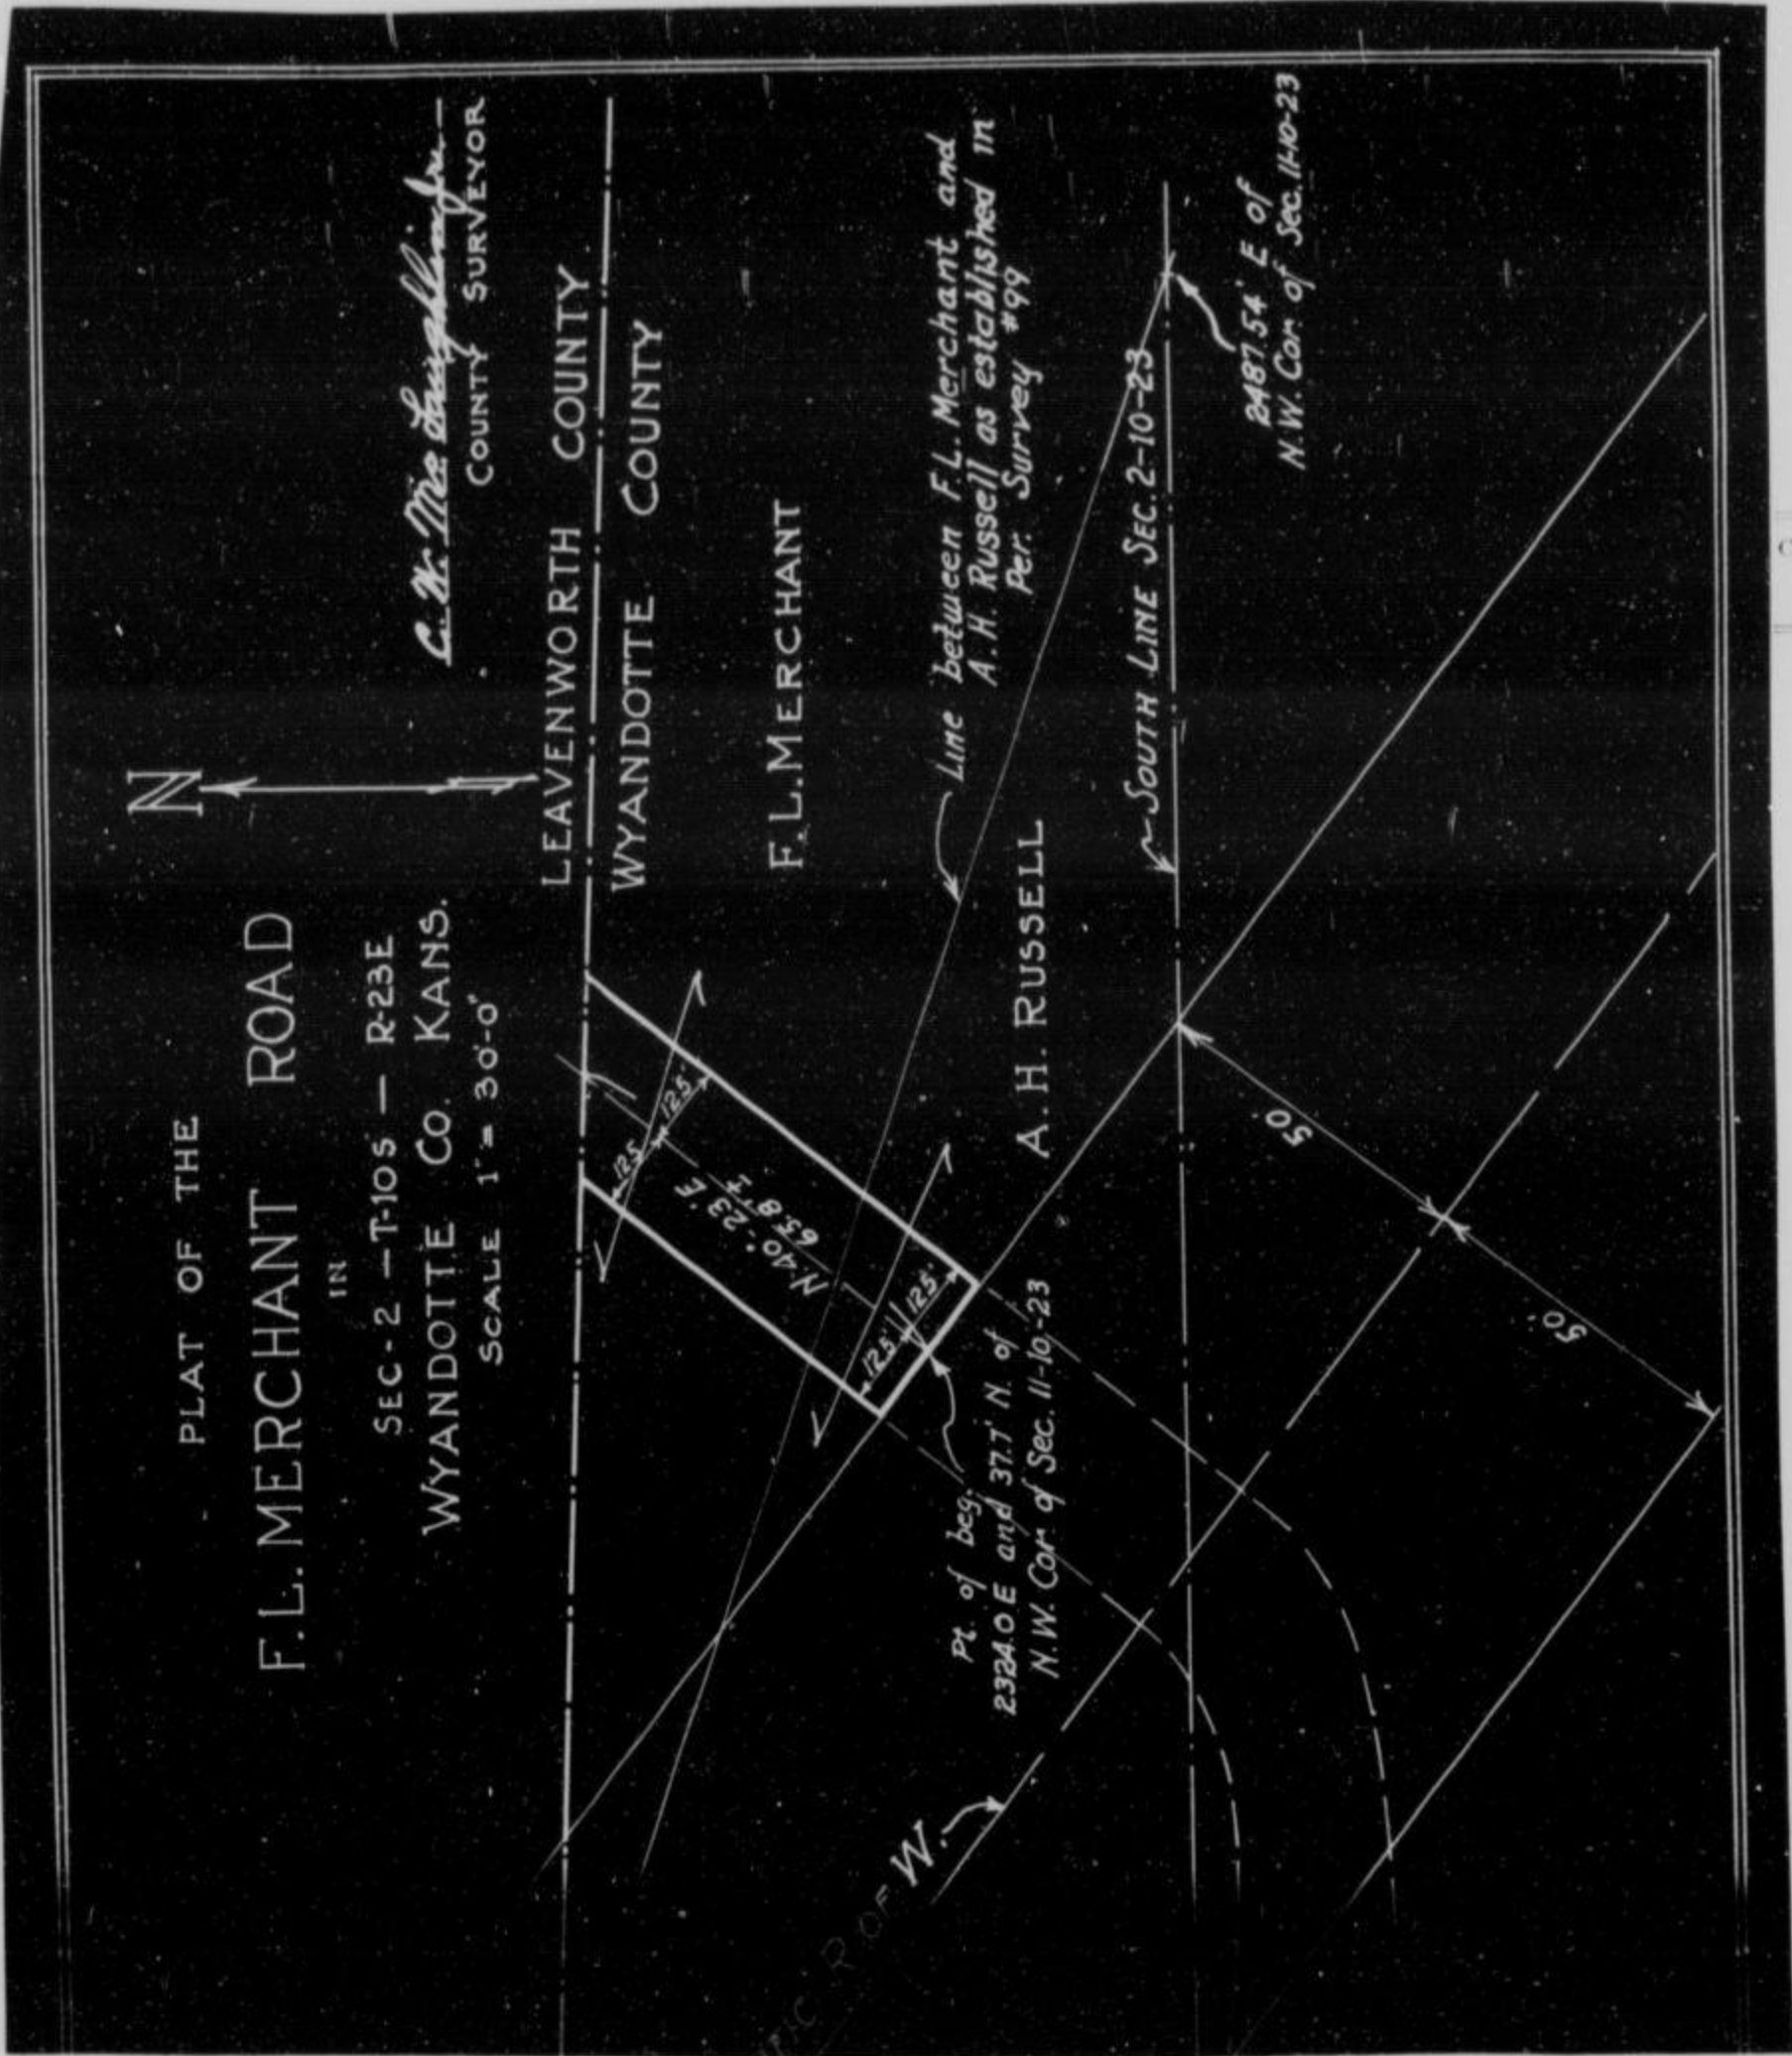 PLAT OF THE
F.L. MERCHANT ROAD
IN
SEC-2-T-10S-R-23E
WYANDOTTE CO. KANS.
SCALE 1"=30'-0"
N
C.W. McLaughlin Jr.
COUNTY SURVEYOR
LEAVENWORTH COUNTY
WYANDOTTE COUNTY
F.L. MERCHANT
12.5'
12.5'
N.40°-23'E
65.8 FT.
12.5'
12.5'
Line between F.L. Merchant and
A.H. Russell as established in
Per. Survey #99
A.H. RUSSELL
SOUTH LINE SEC. 2-10-23
2487.54' E of
N.W. Cor. of Sec. 11-10-23
Pt. of beg.
2324.0 E and 37.7' N. of
N.W. Cor. of Sec. 11-10-23
50'
50'
R. OF W.